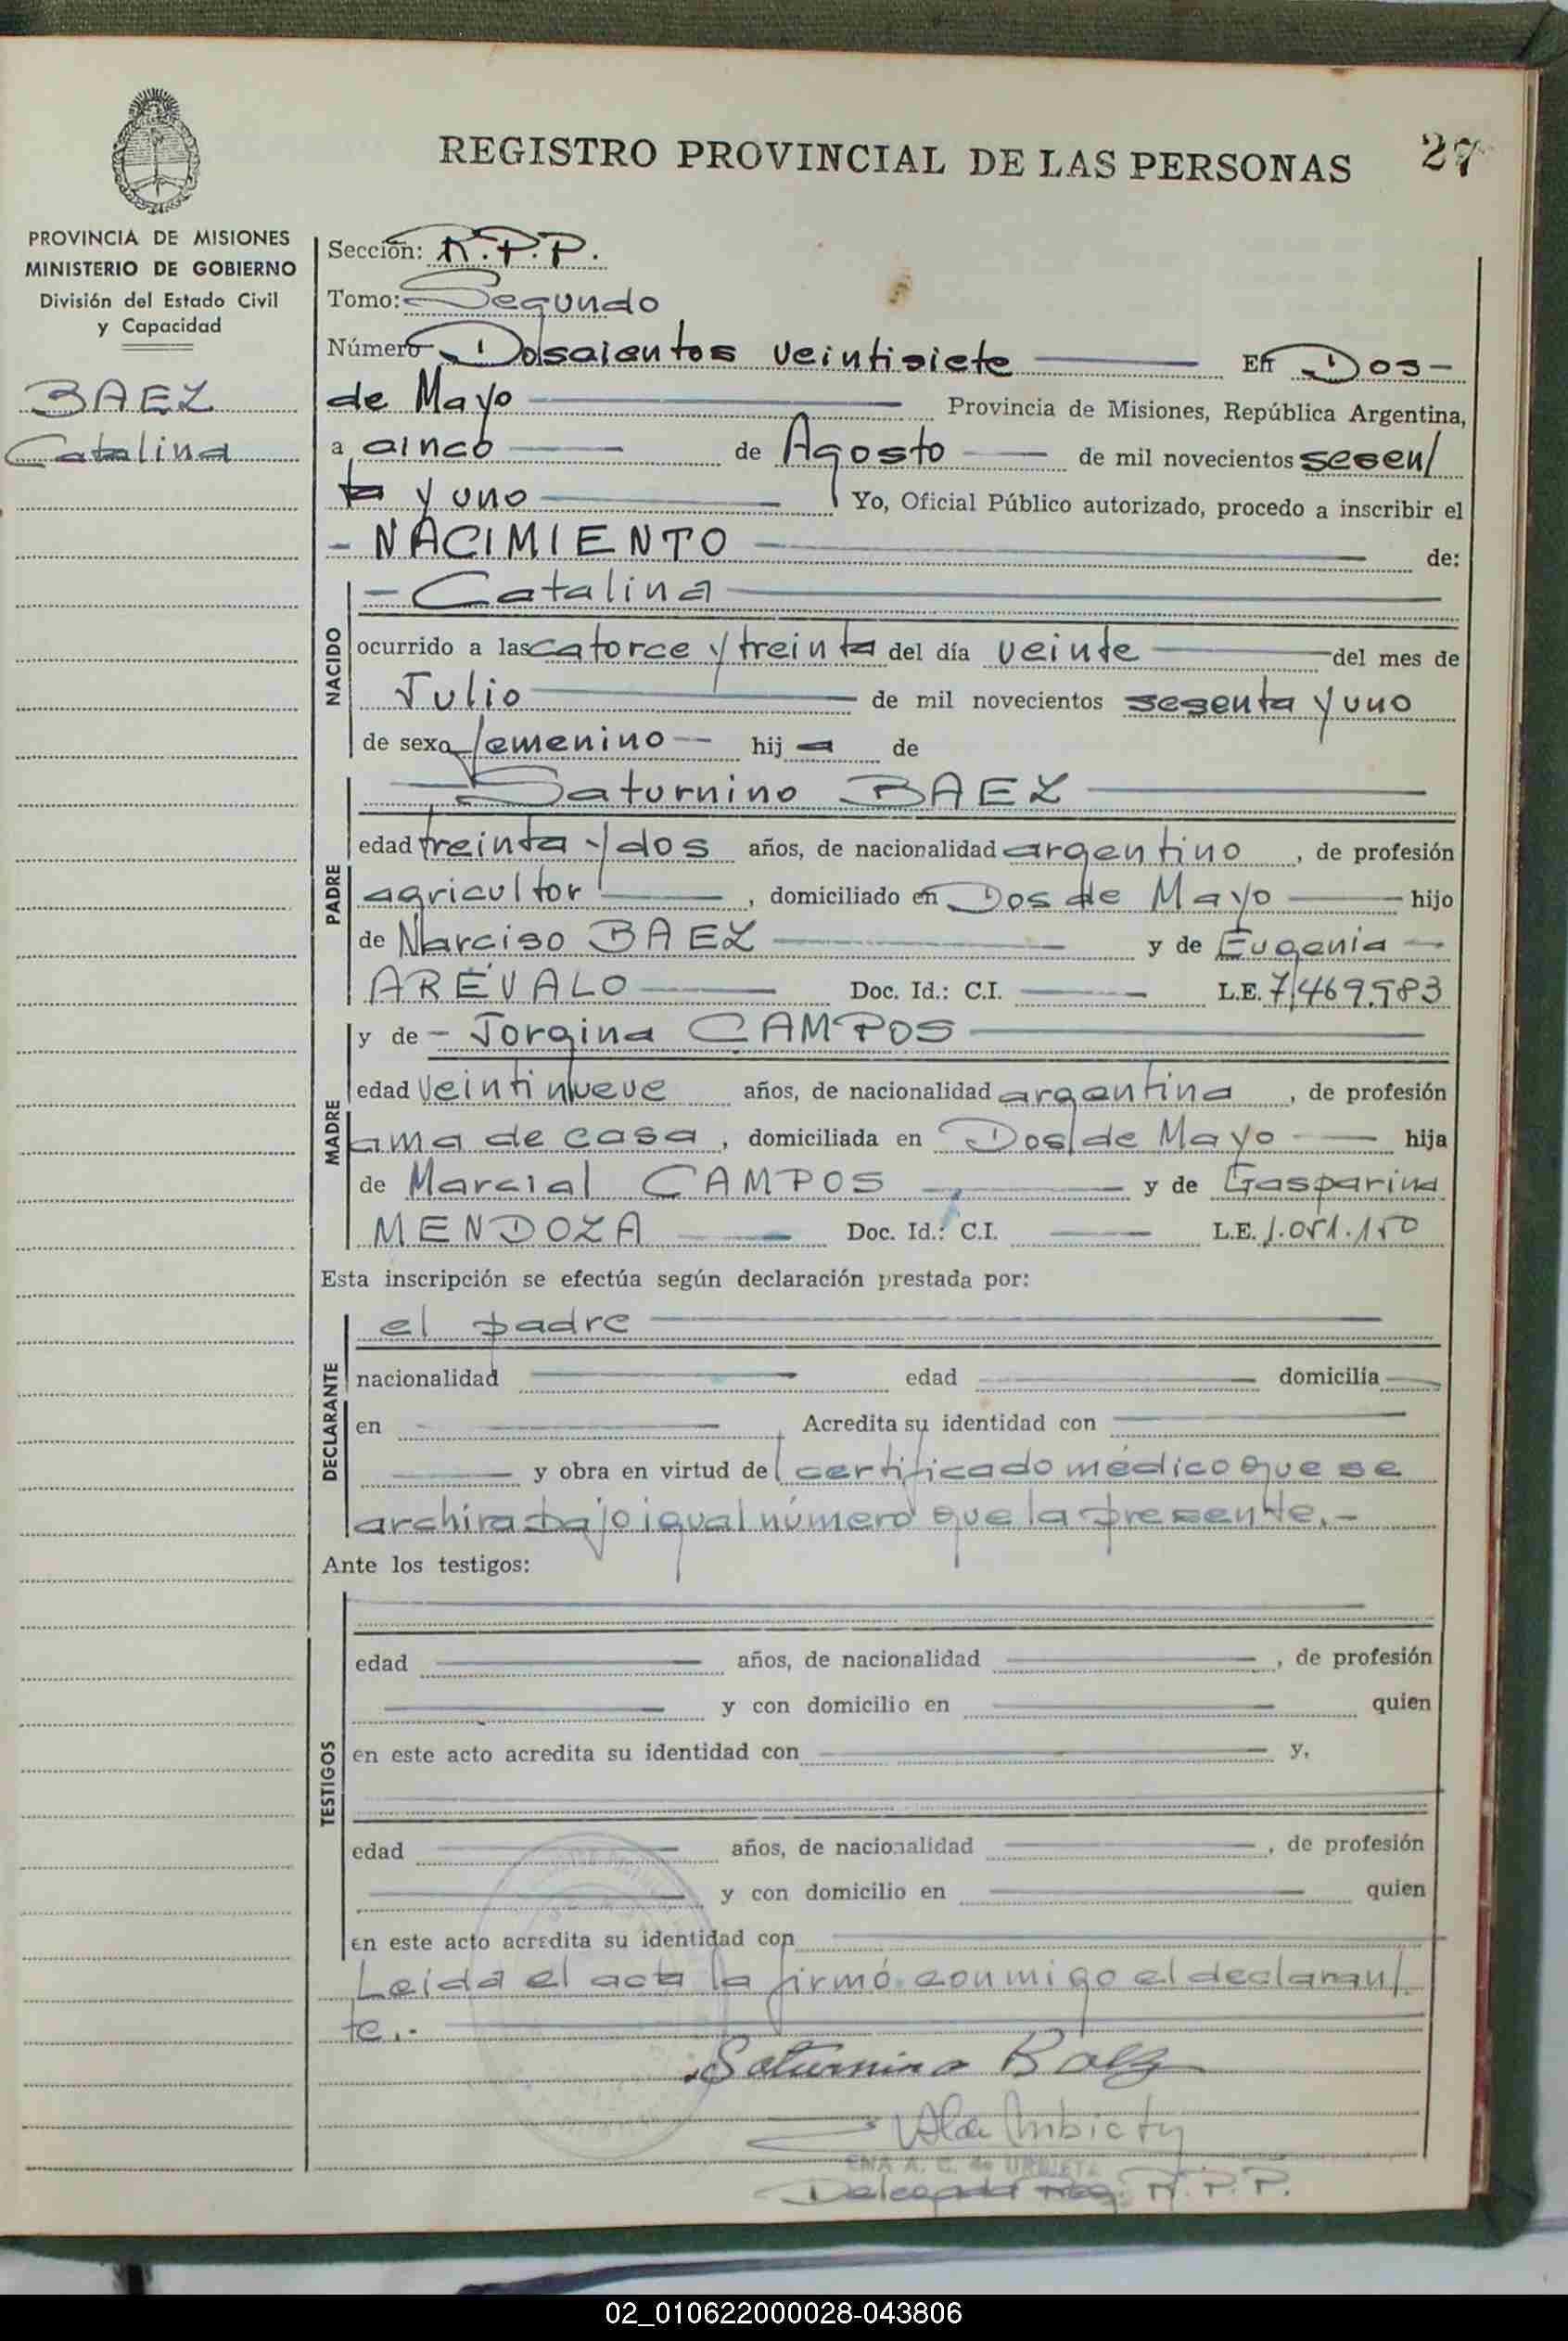 REGISTRO PROVINCIAL DE LAS PERSONAS 27
PROVINCIA DE MISIONES
MINISTERIO DE GOBIERNO
División del Estado Civil
y Capacidad
BAEZ
Catalina
Sección: R.P.P.
Tomo: Segundo
Número Doscientos veintisiete En Dos-
de Mayo Provincia de Misiones, República Argentina,
a cinco de Agosto de mil novecientos sesen/
ta y uno Yo, Oficial Público autorizado, procedo a inscribir el
- NACIMIENTO de:
NACIDO
- Catalina
ocurrido a las catorce y treinta del día veinte del mes de
Julio de mil novecientos sesenta y uno
de sexo femenino hij a de
PADRE
Saturnino BAEZ
edad treinta y dos años, de nacionalidad argentino, de profesión
agricultor, domiciliado en Dos de Mayo hijo
de Narciso BAEZ y de Eugenia
ARÉVALO Doc. Id.: C.I. L.E. 7.469.983
MADRE
y de - Jorgina CAMPOS
edad veintinueve años, de nacionalidad argentina, de profesión
ama de casa, domiciliada en Dos de Mayo hija
de Marcial CAMPOS y de Gasparina
MENDOZA Doc. Id.: C.I. L.E. 1.051.150
Esta inscripción se efectúa según declaración prestada por:
DECLARANTE
el padre
nacionalidad edad domicilia
en Acredita su identidad con
y obra en virtud de certificado médico que se
archiva bajo igual número que la presente.-
Ante los testigos:
TESTIGOS
edad años, de nacionalidad, de profesión
y con domicilio en quien
en este acto acredita su identidad con y,
edad años, de nacionalidad, de profesión
y con domicilio en quien
en este acto acredita su identidad con
Leida el acta la firmó conmigo el declaran/
te.-
Saturnino Baez
R.P.P.
02_010622000028-043806